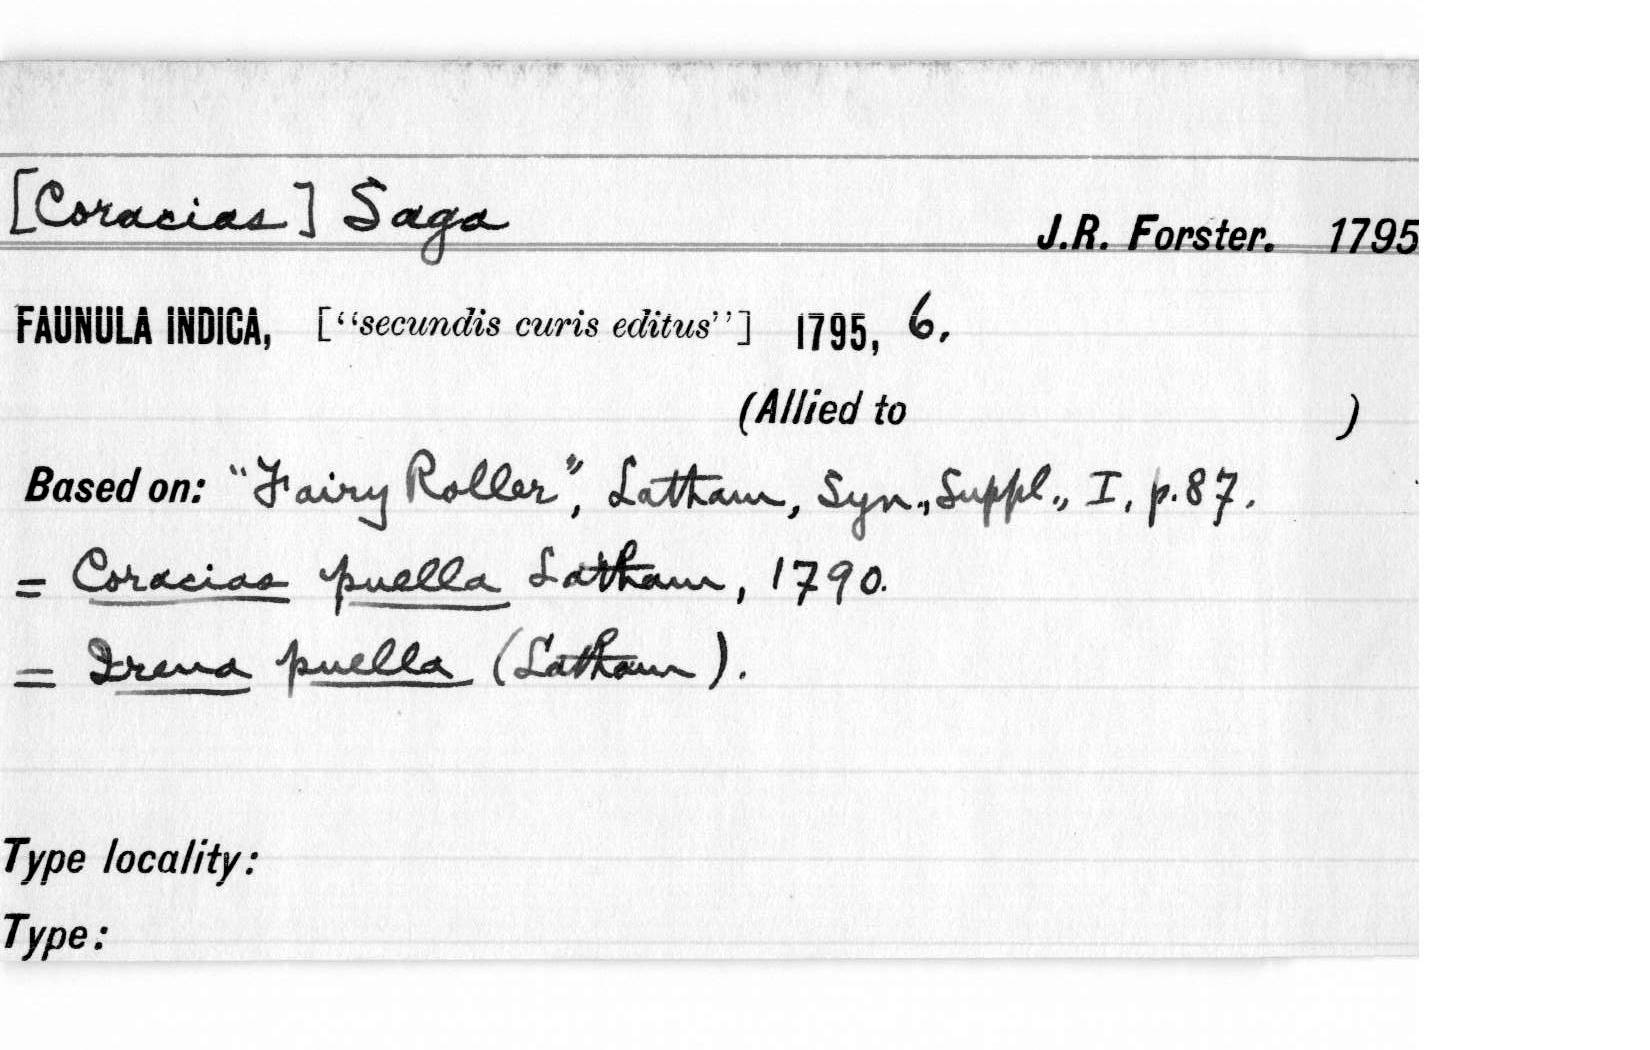 [Coracias] Saga J.R. Forster. 1795
FAUNULA INDICA, ["secundis curis editus"] 1795, 6.
(Allied to )
Based on: "Fairy Roller", Latham, Syn., Suppl., I, p.87.
= Coracias puella Latham, 1790.
= Irena puella (Latham).
Type locality:
Type: